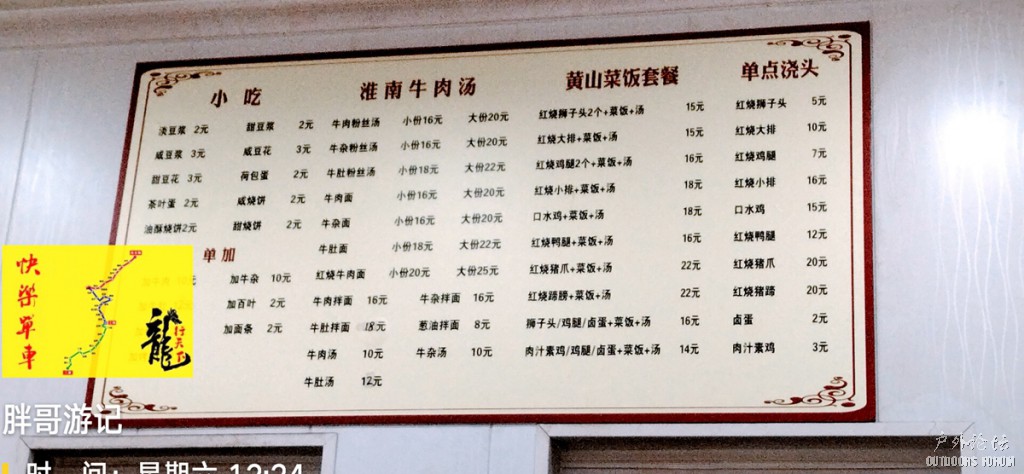 小吃
淡豆浆 2元 甜豆浆 2元
咸豆浆 3元 咸豆花 3元
甜豆花 3元 荷包蛋 2元
茶叶蛋 2元 咸烧饼 2元
油酥烧饼2元 甜烧饼 2元
单加
加牛杂 10元
加百叶 2元
加面条 2元
淮南牛肉汤
牛肉粉丝汤 小份16元 大份20元
牛杂粉丝汤 小份16元 大份20元
牛肚粉丝汤 小份18元 大份22元
牛肉面 小份16元 大份20元
牛杂面 小份16元 大份20元
牛肚面 小份18元 大份22元
红烧牛肉面 小份20元 大份25元
牛肉拌面 16元 牛杂拌面 16元
牛肚拌面 18元 葱油拌面 8元
牛肉汤 10元 牛杂汤 10元
牛肚汤 12元
黄山菜饭套餐
红烧狮子头2个+菜饭+汤 15元
红烧大排+菜饭+汤 15元
红烧鸡腿2个+菜饭+汤 16元
红烧小排+菜饭+汤 18元
口水鸡+菜饭+汤 18元
红烧鸭腿+菜饭+汤 16元
红烧猪爪+菜饭+汤 22元
红烧蹄膀+菜饭+汤 22元
狮子头/鸡腿/卤蛋+菜饭+汤 16元
肉汁素鸡/鸡腿/卤蛋+菜饭+汤 14元
单点浇头
红烧狮子头 5元
红烧大排 10元
红烧鸡腿 7元
红烧小排 16元
口水鸡 15元
红烧鸭腿 12元
红烧猪爪 20元
红烧猪蹄 20元
卤蛋 2元
肉汁素鸡 3元
快樂單車
龍行天下
胖哥游记
时 间：星期六 12:24
户外论坛
OUTDOORS FORUM